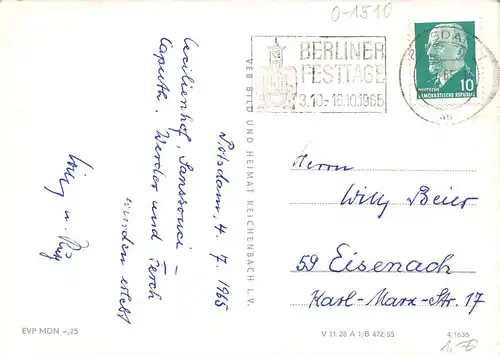 0-1510
BERLINER
FESTTAGE
3.10.-16.10.1965
POTSDAM
DEUTSCHE
DEMOKRATISCHE REPUBLIK
10
Potsdam, 4. 7. 1965
Cecilienhof, Sanssouci –
Caputh, Werder und Ferch
wurden erlebt
Willy u.
VEB BILD UND HEIMAT REICHENBACH i. V.
Herrn
Willy Beier
59 Eisenach
Karl-Marx-Str. 17
EVP MDN –,25
V 11 28 A 1/B 472/65
4/1636